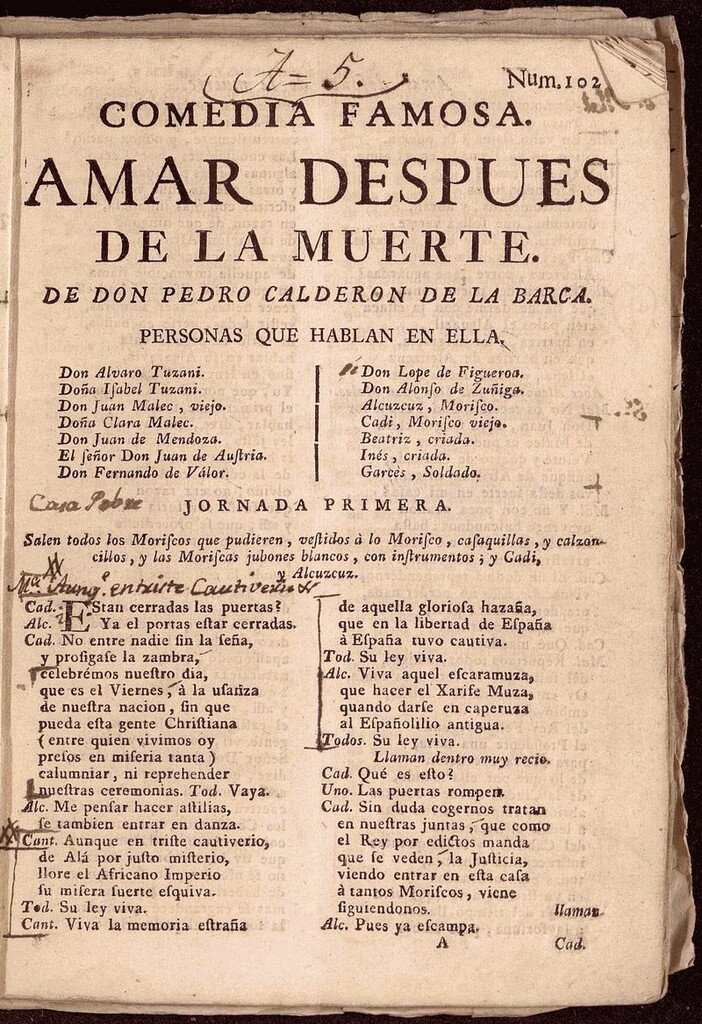 A=5.
Num. 102
COMEDIA FAMOSA.
AMAR DESPUES
DE LA MUERTE.
DE DON PEDRO CALDERON DE LA BARCA.
PERSONAS QUE HABLAN EN ELLA.
Don Alvaro Tuzani.
Doña Iſabel Tuzani.
Don Juan Malec, viejo.
Doña Clara Malec.
Don Juan de Mendoza.
El ſeñor Don Juan de Auſtria.
Don Fernando de Válor.
Don Lope de Figueroa.
Don Alonſo de Zuñiga.
Alcuzcuz, Moriſco.
Cadi, Moriſco viejo.
Beatriz, criada.
Inés, criada.
Garcès, Soldado.
Casa Pobre
JORNADA PRIMERA.
Salen todos los Moriſcos que pudieren, veſtidos à lo Moriſco, caſaquillas, y calzon-
cillos, y las Moriſcas jubones blancos, con inſtrumentos; y Cadi,
y Alcuzcuz.
Mca. Aunq.e en triste Cautiverio
Cad. EStan cerradas las puertas?
Alc. Ya el portas eſtar cerradas.
Cad. No entre nadie ſin la ſeña,
y proſigaſe la zambra,
celebrémos nueſtro dia,
que es el Viernes, à la uſanza
de nueſtra nacion, ſin que
pueda eſta gente Chriſtiana
(entre quien vivimos oy
preſos en miſeria tanta)
calumniar, ni reprehender
nueſtras ceremonias. Tod. Vaya.
Alc. Me penſar hacer aſtilias,
ſe tambien entrar en danza.
Cant. Aunque en triſte cautiverio,
de Alá por juſto miſterio,
llore el Africano Imperio
ſu miſera ſuerte eſquiva.
Tod. Su ley viva.
Cant. Viva la memoria eſtraña
de aquella glorioſa hazaña,
que en la libertad de Eſpaña
à Eſpaña tuvo cautiva.
Tod. Su ley viva.
Alc. Viva aquel eſcaramuza,
que hacer el Xarife Muza,
quando darſe en caperuza
al Eſpañolilio antigua.
Todos. Su ley viva.
Llaman dentro muy recio.
Cad. Qué es eſto?
Uno. Las puertas rompen.
Cad. Sin duda cogernos tratan
en nueſtras juntas, que como
el Rey por edictos manda
que ſe veden, la Juſticia,
viendo entrar en eſta caſa
à tantos Moriſcos, viene
ſiguiendonos. llaman.
Alc. Pues ya eſcampa.
A Cad.